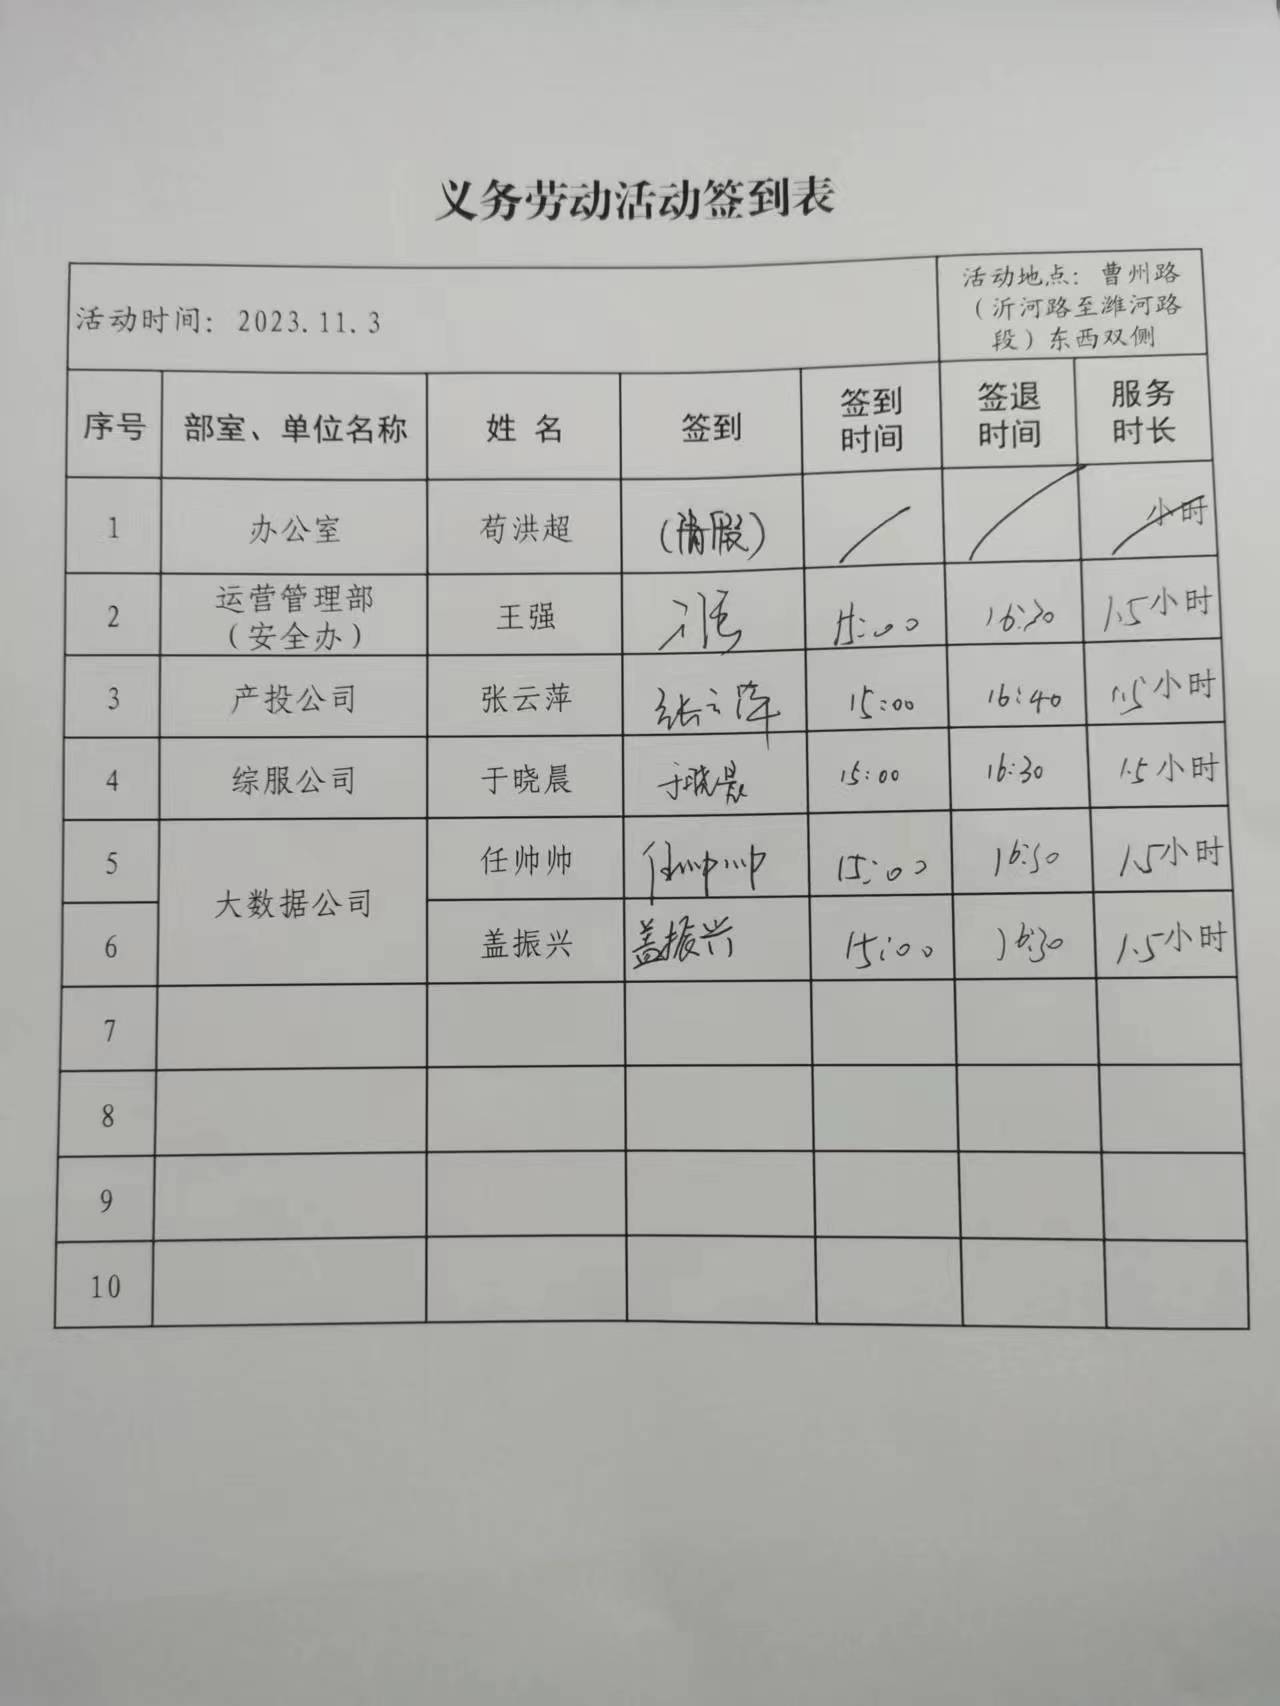 义务劳动活动签到表
活动时间：2023.11.3
活动地点：曹州路
（沂河路至潍河路
段）东西双侧
序号 部室、单位名称 姓 名 签到 签到时间 签退时间 服务时长
1 办公室 苟洪超 (请假) 小时
2 运营管理部（安全办） 王强 王强 15:00 16:30 1.5小时
3 产投公司 张云萍 张云萍 15:00 16:40 1.5小时
4 综服公司 于晓晨 于晓晨 15:00 16:30 1.5小时
5 大数据公司 任帅帅 任帅帅 15:00 16:30 1.5小时
6 盖振兴 盖振兴 15:00 16:30 1.5小时
7
8
9
10